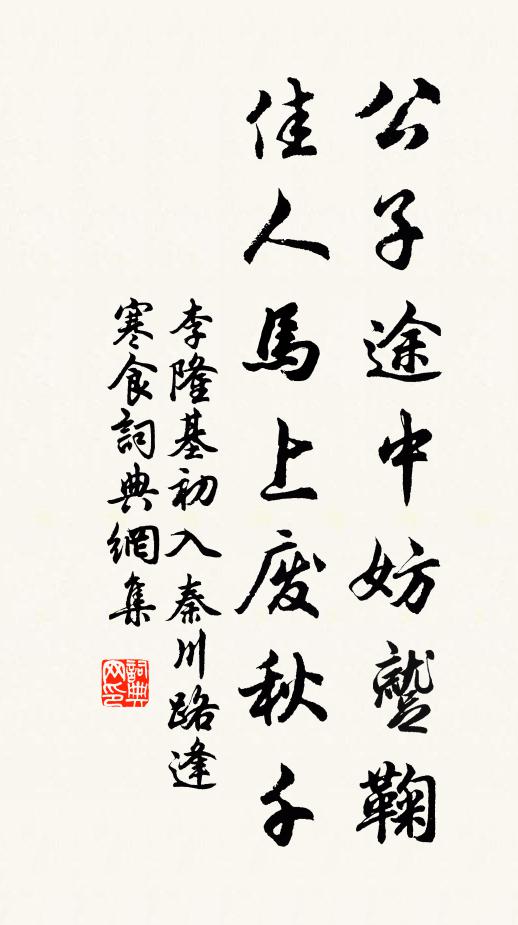 公子途中妨蹵鞠
佳人馬上廢秋千
李隆基初入秦川路逢
寒食詞典網集
詞典
网印